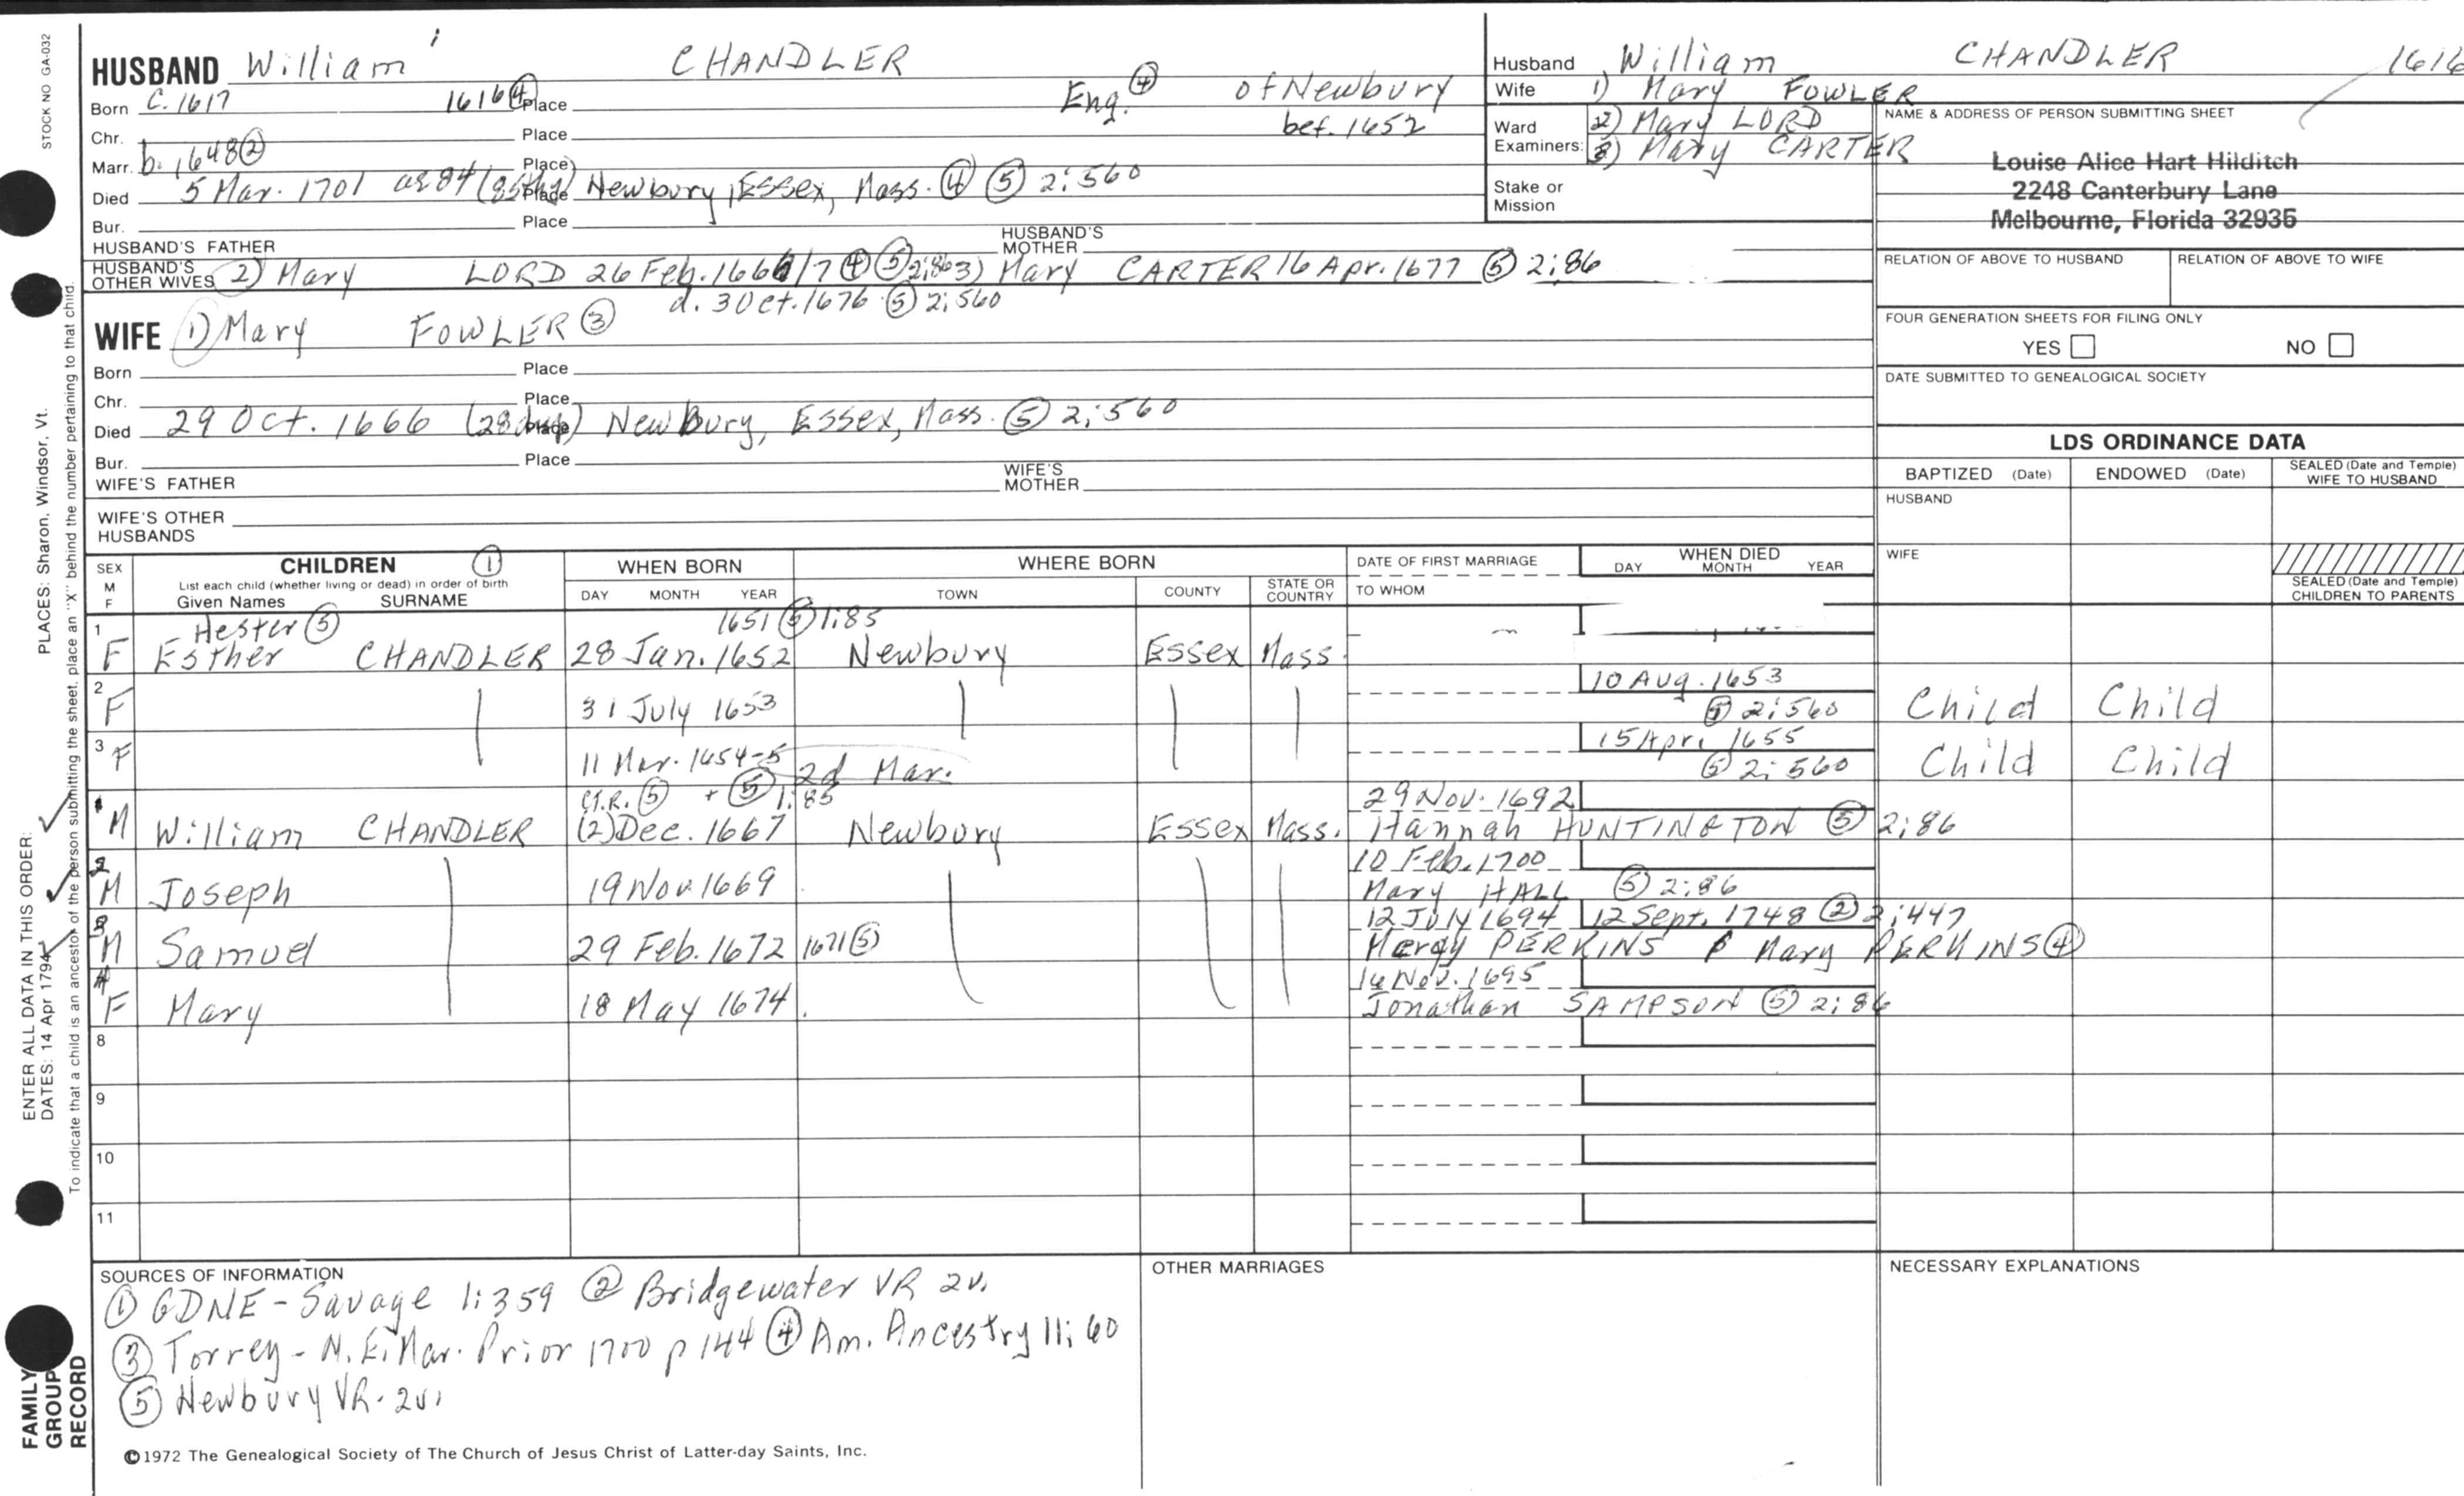 STOCK NO GA-032
HUSBAND William CHANDLER
Born c. 1617 1616 ④ Place Eng. ④ of Newbury
Chr. Place bef. 1652
Marr. b. 1648 ② Place
Died 5 Mar. 1701 ae 84 (85thy) Place Newbury, Essex, Mass. ④ ⑤ 2:560
Bur. Place
HUSBAND'S FATHER HUSBAND'S MOTHER
HUSBAND'S OTHER WIVES 2) Mary LORD 26 Feb. 1666/7 ④ ⑤ 2:86 3) Mary CARTER 16 Apr. 1677 ⑤ 2:86
d. 3 Oct. 1676 ⑤ 2:560
WIFE 1) Mary FOWLER ③
Born Place
Chr. Place
Died 29 Oct. 1666 Place New Bury, Essex, Mass. ⑤ 2:560
Bur. Place
WIFE'S FATHER WIFE'S MOTHER
WIFE'S OTHER HUSBANDS
Husband William CHANDLER 1616
Wife 1) Mary FOWLER
Ward 2) Mary LORD
Examiners: 3) Mary CARTER
Stake or Mission
NAME & ADDRESS OF PERSON SUBMITTING SHEET
Louise Alice Hart Hilditch
2248 Canterbury Lane
Melbourne, Florida 32935
RELATION OF ABOVE TO HUSBAND RELATION OF ABOVE TO WIFE
FOUR GENERATION SHEETS FOR FILING ONLY
YES NO
DATE SUBMITTED TO GENEALOGICAL SOCIETY
LDS ORDINANCE DATA
BAPTIZED (Date) ENDOWED (Date) SEALED (Date and Temple) WIFE TO HUSBAND
HUSBAND
WIFE
SEALED (Date and Temple) CHILDREN TO PARENTS
SEX M F CHILDREN ① WHEN BORN WHERE BORN DATE OF FIRST MARRIAGE WHEN DIED
List each child (whether living or dead) in order of birth
Given Names SURNAME DAY MONTH YEAR TOWN COUNTY STATE OR COUNTRY TO WHOM DAY MONTH YEAR
1 Hester ⑤ 1651 ⑤ 1:85
F Esther CHANDLER 28 Jan. 1652 Newbury Essex Mass.
2 10 Aug. 1653
F 31 July 1653 ⑤ 2:560 Child Child
3 15 Apr. 1655
F 11 Mar. 1654-5 2d Mar. ⑤ 2:560 Child Child
CT.R. ⑤ + ⑤ 1:85 29 Nov. 1692
1 M William CHANDLER (2) Dec. 1667 Newbury Essex Mass. Hannah HUNTINGTON ⑤ 2:86
2 10 Feb. 1700
M Joseph 19 Nov. 1669 Mary HALL ⑤ 2:86
3 12 July 1694 12 Sept. 1748 ② 2:447
M Samuel 29 Feb. 1672 1671 ⑤ Mercy PERKINS Mary PERKINS ④
4 16 Nov. 1695
F Mary 18 May 1674 Jonathan SAMPSON ⑤ 2:86
8
9
10
11
SOURCES OF INFORMATION
① GDNE - Savage 1:359 ② Bridgewater VR 2v.
③ Torrey - N.E. Mar. Prior 1700 p 144 ④ Am. Ancestry 11:60
⑤ Newbury VR. 2v.
OTHER MARRIAGES
NECESSARY EXPLANATIONS
©1972 The Genealogical Society of The Church of Jesus Christ of Latter-day Saints, Inc.
PLACES: Sharon, Windsor, Vt.
To indicate that a child is an ancestor of the person submitting the sheet, place an "X" behind the number pertaining to that child.
ENTER ALL DATA IN THIS ORDER:
DATES: 14 Apr 1794
FAMILY GROUP RECORD